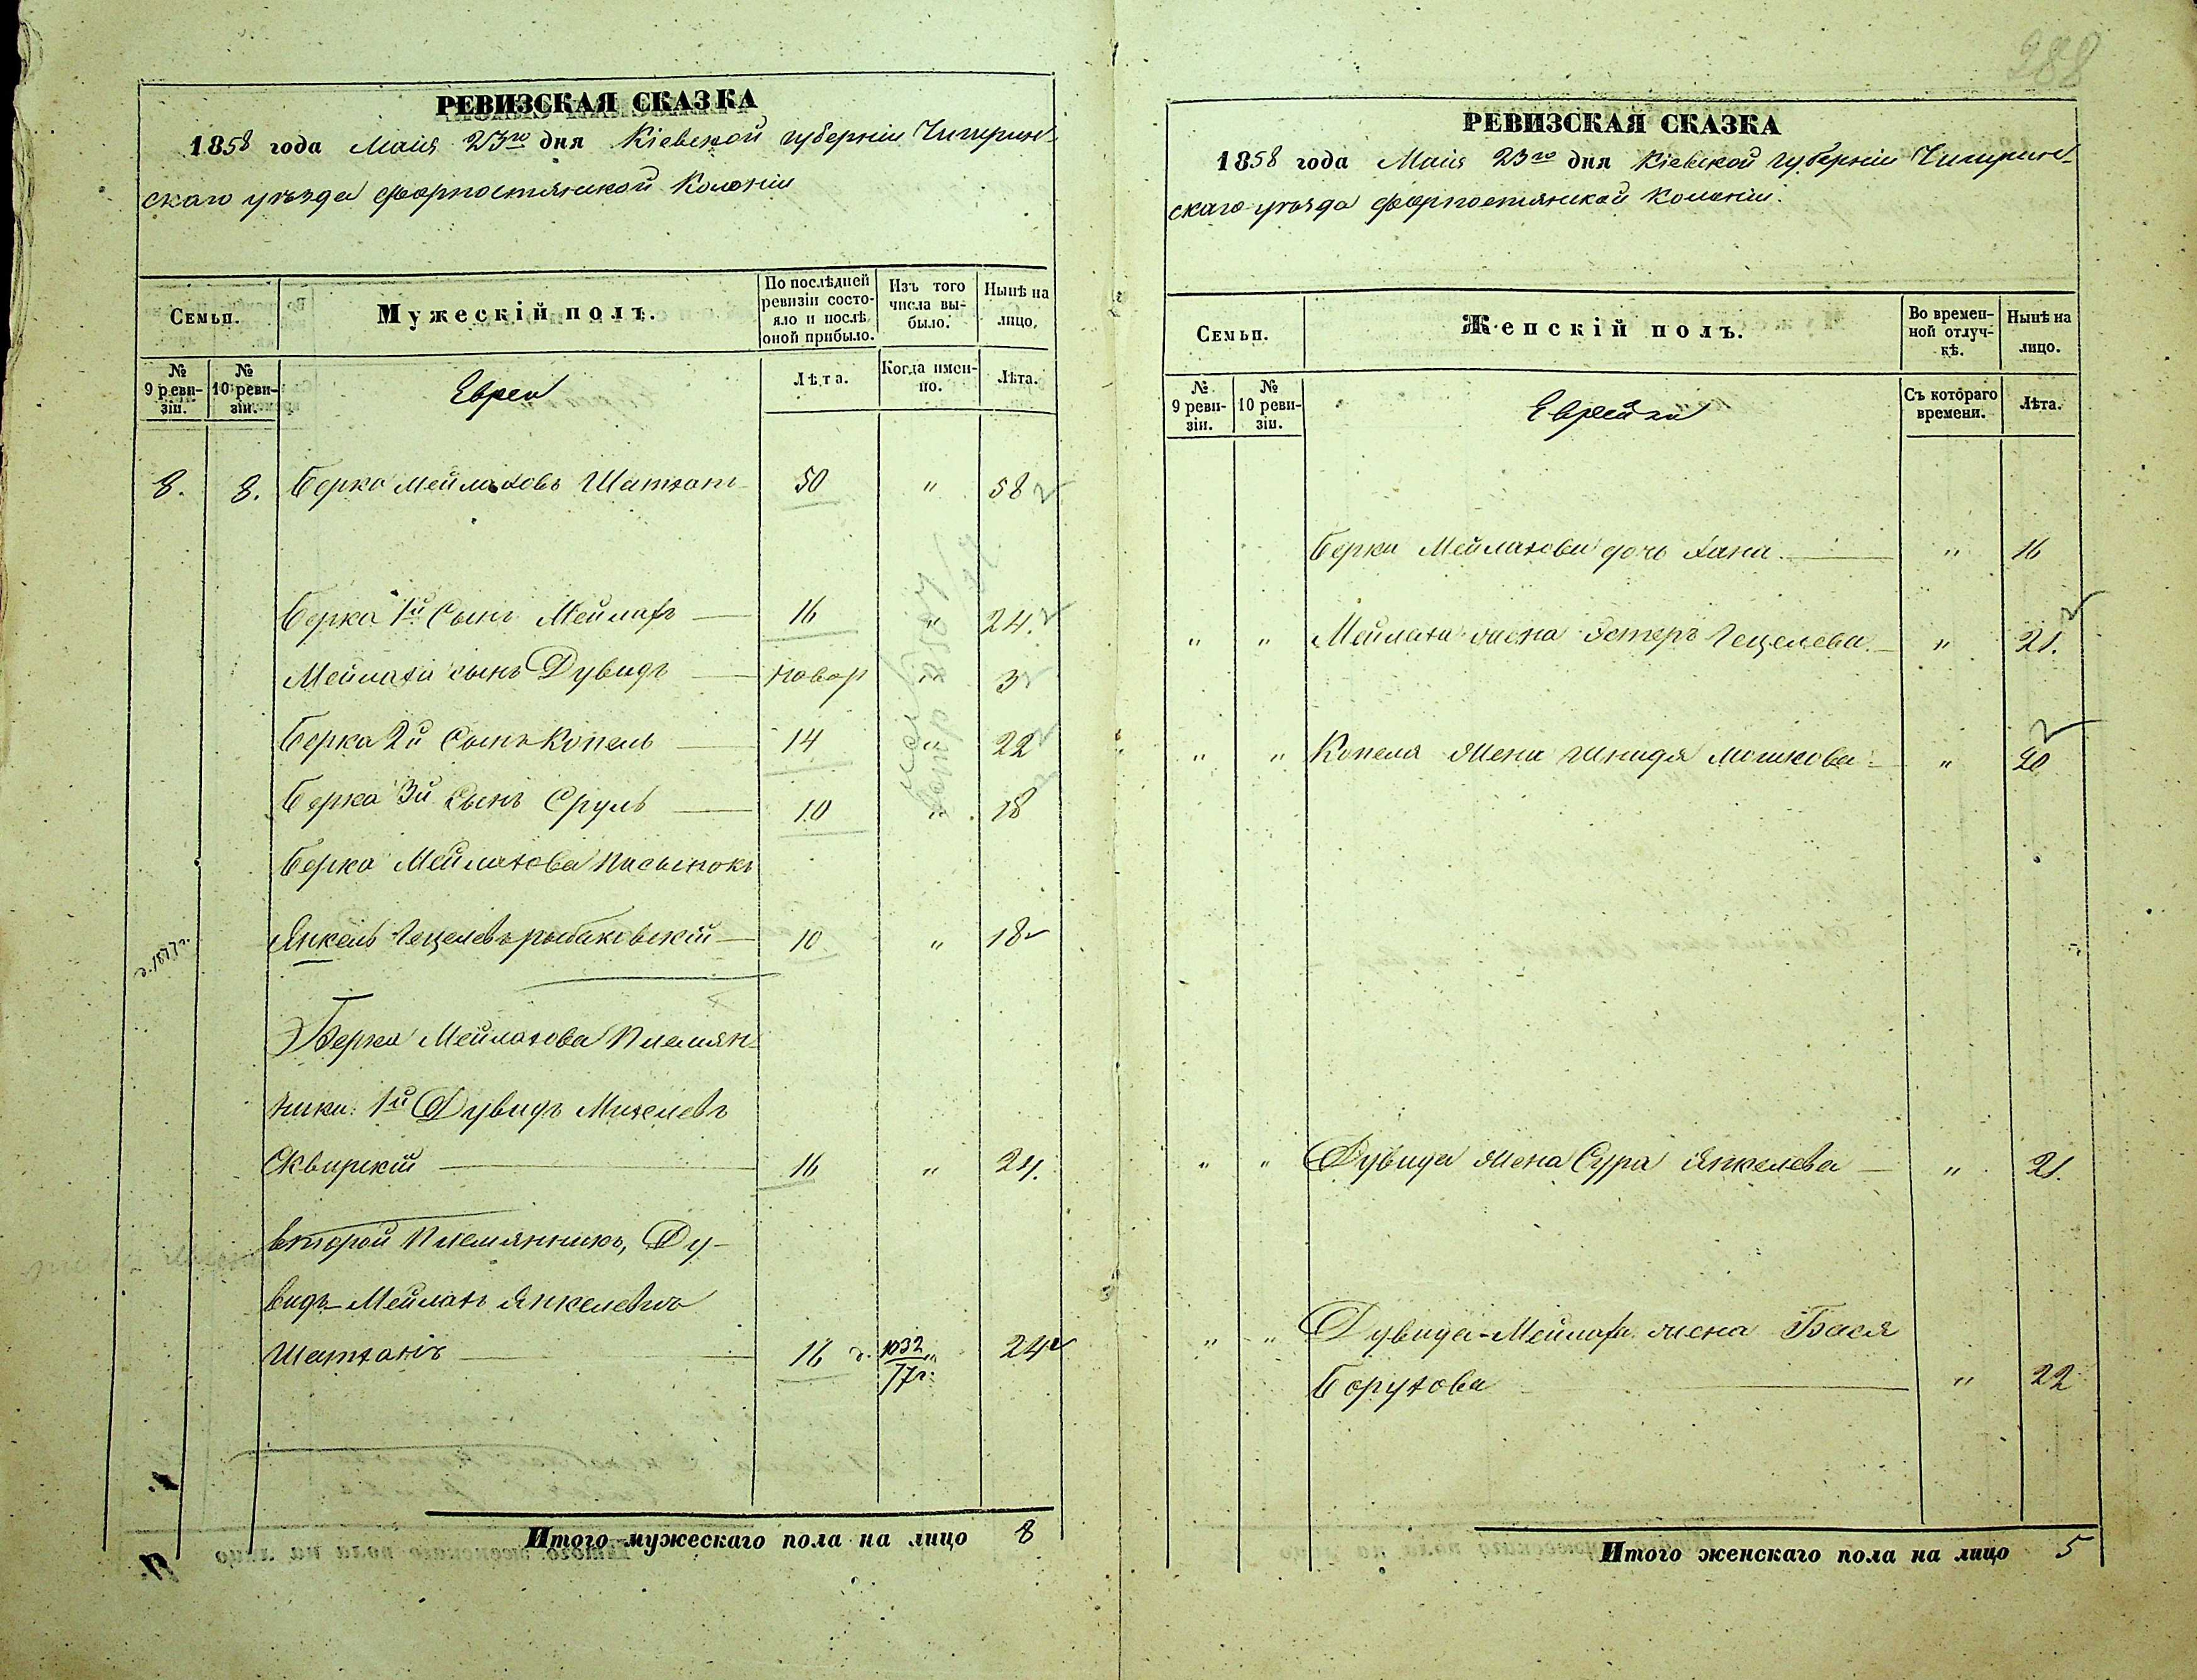 РЕВИЗСКАЯ СКАЗКА
1858 года Маия 23го дня Кіевской губерніи Чигирин-
скаго уѣзда форпостянской Колоніи
Семьи.
Мужескій полъ.
По послѣдней ревизіи состо-яло и послѣ оной прибыло.
Изъ того числа вы-было.
Нынѣ на лицо.
№ 9 реви-зіи.
№ 10 реви-зіи.
Евреи
Лѣта.
Когда имен-но.
Лѣта.
8. 8. Берко Мейлаховъ Шатхан 50 " 58
Берка 1й Сынъ Мейлахъ 16 " 24.
Мейлаха сынъ Дувидъ новор " 3
Берка 2й Сынъ Копель 14 " 22
Берка 3й Сынъ Сруль 10 " 18
Берка Мейлахова Пасынокъ
Янкель Гецелевъ рыбаковскій 10 " 18
Берка Мейлахова Племян-
ники: 1й Дувидъ Михелевъ
Сквирскій 16 " 24.
второй Племянникъ, Ду-
видъ-Мейлахъ Янкелевъ
Шатханъ 16 1032/77г. 24
Итого мужескаго пола на лицо 8
288
РЕВИЗСКАЯ СКАЗКА
1858 года Маия 23го дня Кіевской губерніи Чигирин-
скаго уѣзда форпостянской Колоніи.
Семьи.
Женскій полъ.
Во времен-ной отлуч-кѣ.
Нынѣ на лицо.
№ 9 реви-зіи.
№ 10 реви-зіи.
Еврейки
Съ котораго времени.
Лѣта.
Берки Мейлахова дочь Хана. " 16
" " Мейлаха жена Эстеръ Гецелева. " 21.
" " Копеля жена Шнидя Мошкова " 20
" " Дувида жена Сура Янкелева " 21.
" " Дувида-Мейлаха жена Бася
Борухова " 22
Итого женскаго пола на лицо 5